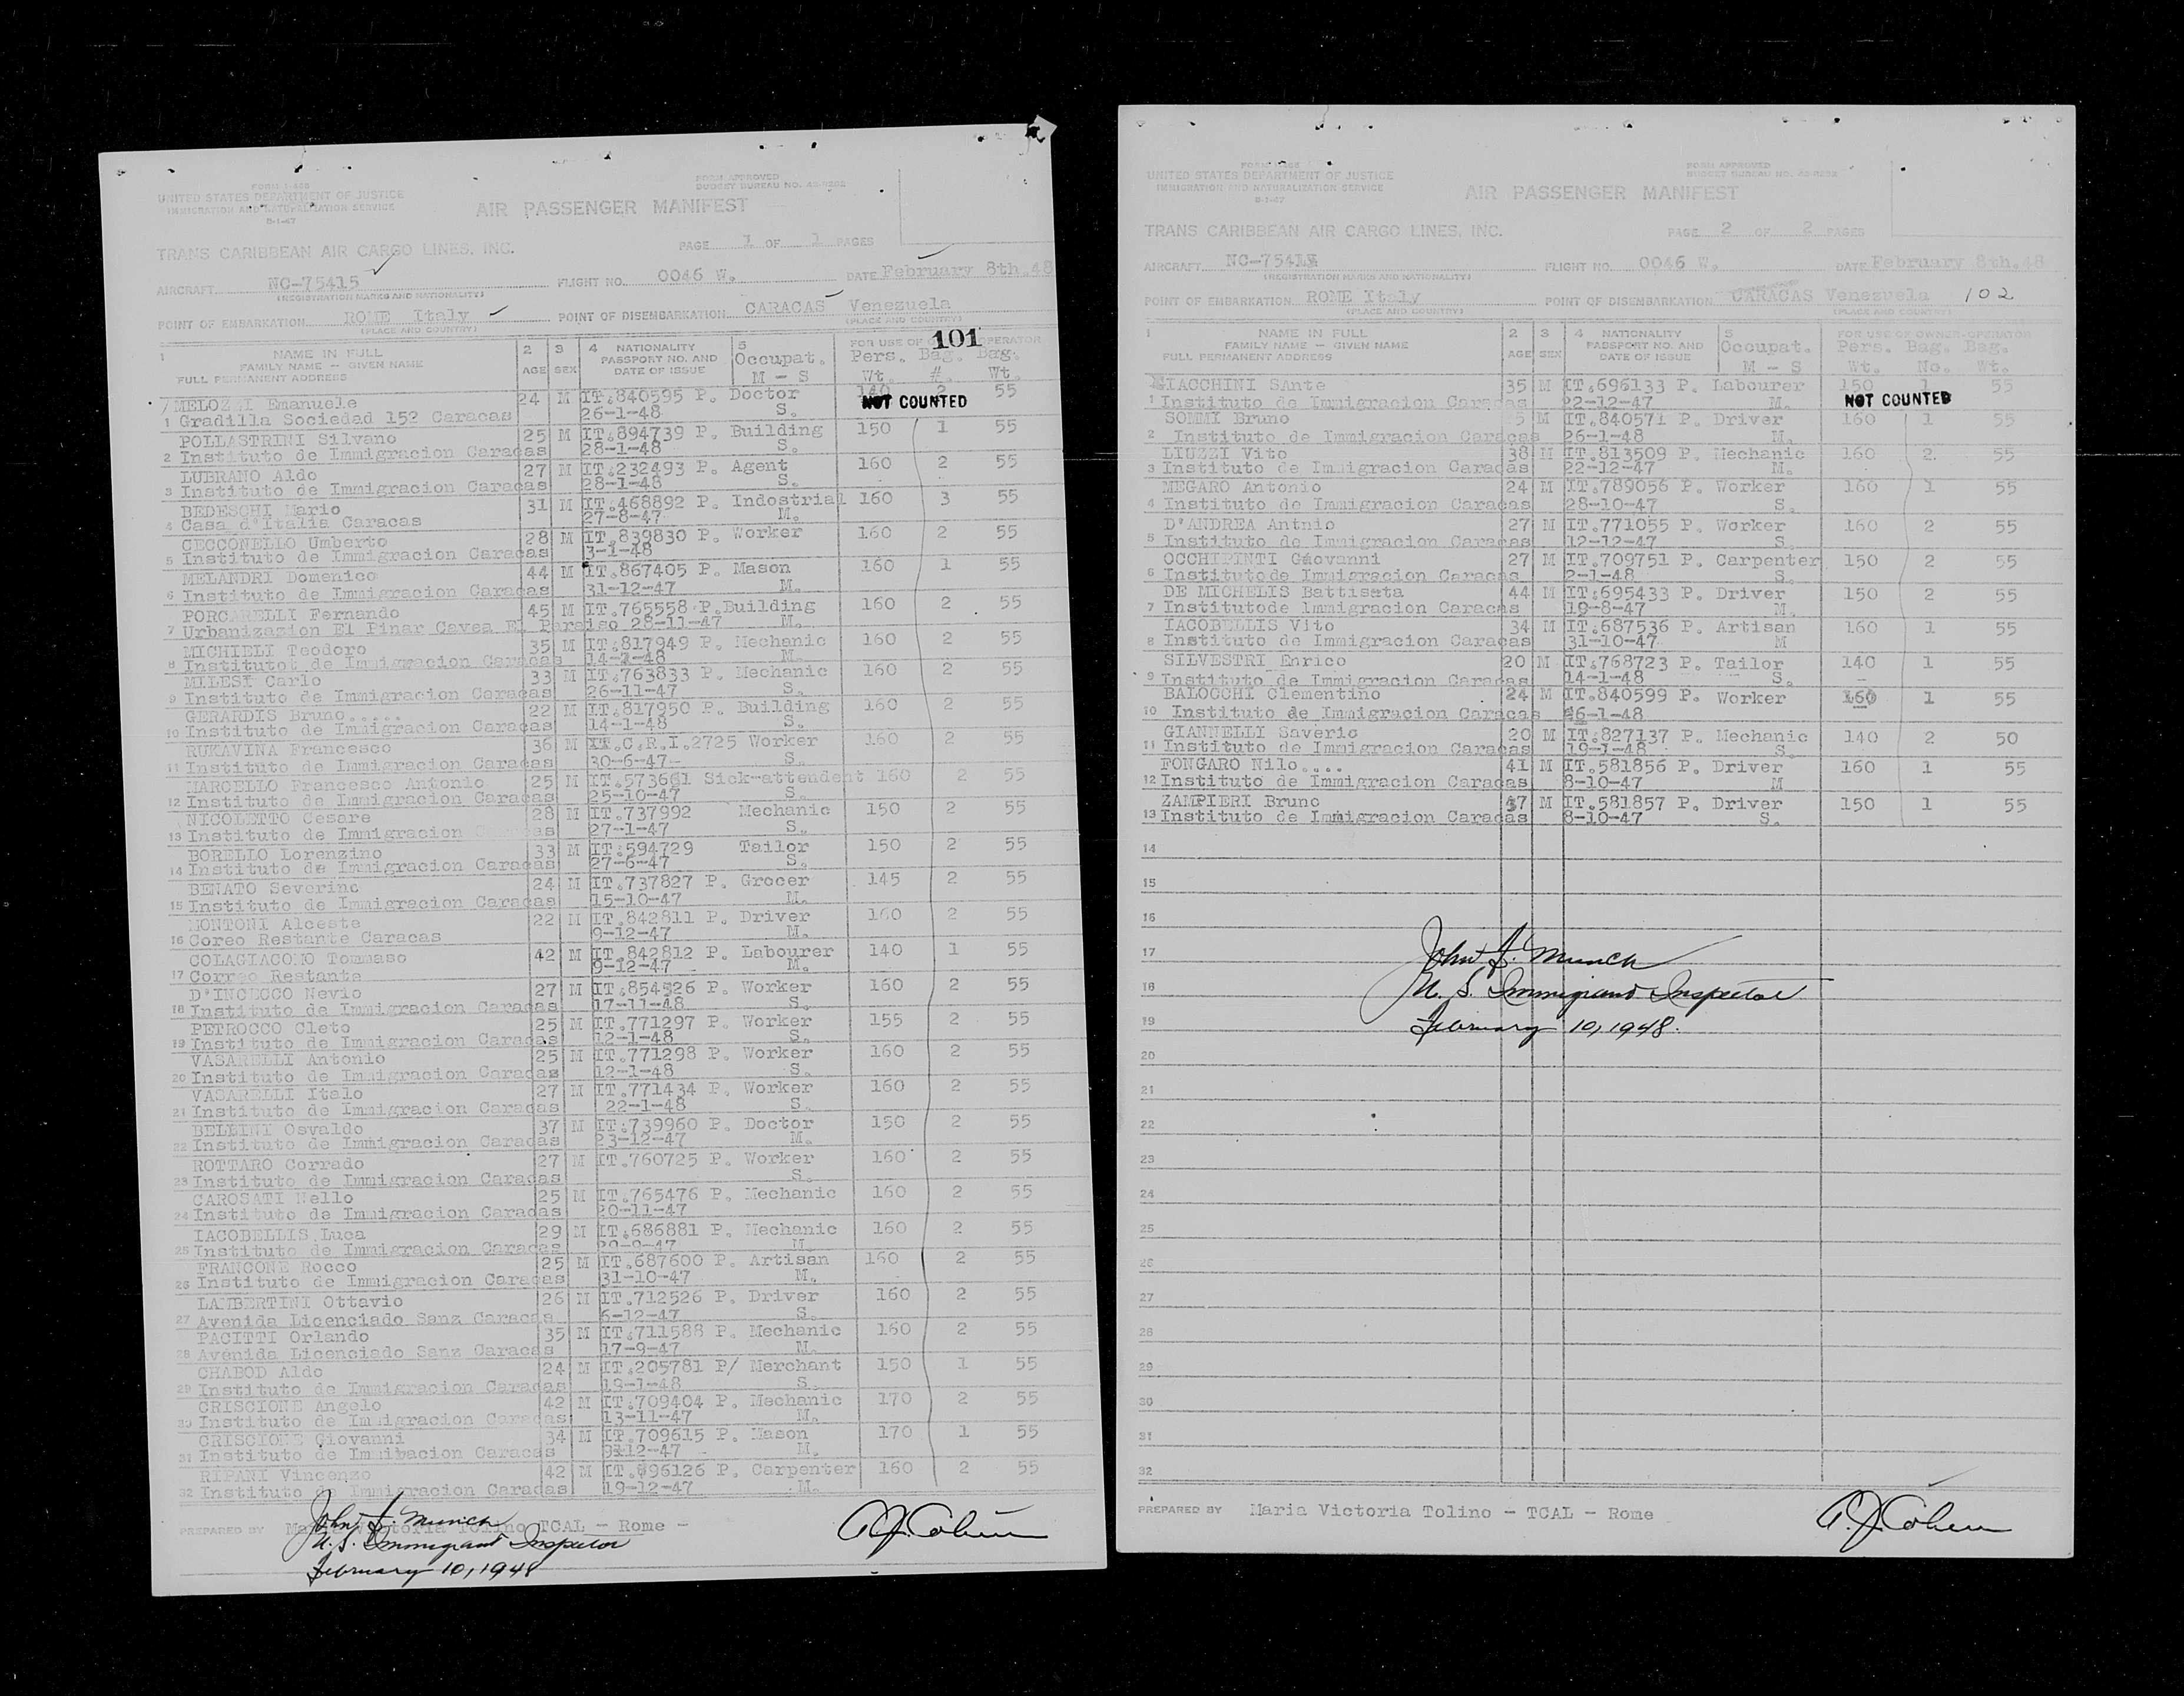 FORM I-466
UNITED STATES DEPARTMENT OF JUSTICE
IMMIGRATION AND NATURALIZATION SERVICE
8-1-47
FORM APPROVED
BUDGET BUREAU NO. 43-R292
AIR PASSENGER MANIFEST
TRANS CARIBBEAN AIR CARGO LINES, INC.
PAGE 1 OF 1 PAGES
AIRCRAFT NC-75415 FLIGHT NO. 0046 W. DATE February 8th.48
(REGISTRATION MARKS AND NATIONALITY)
POINT OF EMBARKATION ROME Italy POINT OF DISEMBARKATION CARACAS Venezuela
(PLACE AND COUNTRY) (PLACE AND COUNTRY)
101
1 NAME IN FULL 2 3 4 NATIONALITY 5 FOR USE OF OPERATOR
FAMILY NAME -- GIVEN NAME AGE SEX PASSPORT NO. AND Occupat. Pers. Bag. Bag.
FULL PERMANENT ADDRESS DATE OF ISSUE M - S Wt. #. Wt.
MELOZZI Emanuele 24 M IT.840595 P. Doctor 140 2 55
1 Gradilla Sociedad 152 Caracas 26-1-48 S. NOT COUNTED
POLLASTRINI Silvano 25 M IT.894739 P. Building 150 1 55
2 Instituto de Immigracion Caracas 28-1-48 S.
LUBRANO Aldo 27 M IT.232493 P. Agent 160 2 55
3 Instituto de Immigracion Caracas 28-1-48 S.
BEDESCHI Mario 31 M IT.468892 P. Indostrial 160 3 55
4 Casa d'Italia Caracas 27-8-47 M.
CECCONELLO Umberto 28 M IT.839830 P. Worker 160 2 55
5 Instituto de Immigracion Caracas 3-1-48
MELANDRI Domenico 44 M IT.867405 P. Mason 160 1 55
6 Instituto de Immigracion Caracas 31-12-47 M.
PORCARELLI Fernando 45 M IT.765558 P. Building 160 2 55
7 Urbanizazion El Pinar Cavea El Paraiso 28-11-47 M.
MICHIELI Teodoro 35 M IT.817949 P. Mechanic 160 2 55
8 Institutot de Immigracion Caracas 14-1-48 M.
MILESI Carlo 33 M IT.763833 P. Mechanic 160 2 55
9 Instituto de Immigracion Caracas 26-11-47 S.
GERARDIS Bruno..... 22 M IT.817950 P. Building 160 2 55
10 Instituto de Immigracion Caracas 14-1-48 S.
RUKAVINA Francesco 36 M IT.C.R.I.2725 Worker 160 2 55
11 Instituto de Immigracion Caracas 30-6-47- S.
MARCELLO Francesco Antonio 25 M IT.573661 Sick-attendent 160 2 55
12 Instituto de Immigracion Caracas 25-10-47 S.
NICOLETTO Cesare 28 M IT.737992 Mechanic 150 2 55
13 Instituto de Immigracion Caracas 27-1-47 S.
BORELLO Lorenzino 33 M IT.594729 Tailor 150 2 55
14 Instituto de Immigracion Caracas 27-6-47 S.
BENATO Severino 24 M IT.737827 P. Grocer 145 2 55
15 Instituto de Immigracion Caracas 15-10-47 M.
MONTONI Alceste 22 M IT.842811 P. Driver 160 2 55
16 Coreo Restante Caracas 9-12-47 M.
COLAGIACOMO Tommaso 42 M IT.842812 P. Labourer 140 1 55
17 Correo Restante 9-12-47 M.
D'INCECCO Nevio 27 M IT.854526 P. Worker 160 2 55
18 Instituto de Immigracion Caracas 17-11-48 S.
PETROCCO Cleto 25 M IT.771297 P. Worker 155 2 55
19 Instituto de Immigracion Caracas 12-1-48 S.
VASARELLI Antonio 25 M IT.771298 P. Worker 160 2 55
20 Instituto de Immigracion Caracas 12-1-48 S.
VASARELLI Italo 27 M IT.771434 P. Worker 160 2 55
21 Instituto de Immigracion Caracas 22-1-48 S.
BELLINI Osvaldo 37 M IT.739960 P. Doctor 150 2 55
22 Instituto de Immigracion Caracas 23-12-47 M.
ROTTARO Corrado 27 M IT.760725 P. Worker 160 2 55
23 Instituto de Immigracion Caracas S.
CAROSATI Nello 25 M IT.765476 P. Mechanic 160 2 55
24 Instituto de Immigracion Caracas 20-11-47
IACOBELLIS Luca 29 M IT.686881 P. Mechanic 160 2 55
25 Instituto de Immigracion Caracas M.
FRANCONE Rocco 25 M IT.687600 P. Artisan 160 2 55
26 Instituto de Immigracion Caracas 31-10-47 M.
LAMBERTINI Ottavio 26 M IT.712526 P. Driver 160 2 55
27 Avenida Licenciado Sanz Caracas 6-12-47 S.
PACITTI Orlando 35 M IT.711588 P. Mechanic 160 2 55
28 Avenida Licenciado Sanz Caracas 17-9-47 M.
CHABOD Aldo 24 M IT.205781 P/ Merchant 150 1 55
29 Instituto de Immigracion Caracas 19-1-48 S.
CRISCIONE Angelo 42 M IT.709404 P. Mechanic 170 2 55
30 Instituto de Immigracion Caracas 13-11-47 M.
CRISCIONE Giovanni 34 M IT.709615 P. Mason 170 1 55
31 Instituto de Immibacion Caracas 12-47 M.
RIPANI Vincenzo 42 M IT.696126 P. Carpenter 160 2 55
32 Instituto de Immigracion Caracas 19-12-47 M.
PREPARED BY Maria Victoria Tolino TCAL - Rome -
John L. Munch
U.S. Immigrant Inspector
February 10, 1948
A.J. Cohen
FORM I-466
UNITED STATES DEPARTMENT OF JUSTICE
IMMIGRATION AND NATURALIZATION SERVICE
8-1-47
FORM APPROVED
BUDGET BUREAU NO. 43-R292
AIR PASSENGER MANIFEST
TRANS CARIBBEAN AIR CARGO LINES, INC.
PAGE 2 OF 2 PAGES
AIRCRAFT NC-75415 FLIGHT NO. 0046 W. DATE February 8th.48
(REGISTRATION MARKS AND NATIONALITY)
POINT OF EMBARKATION ROME Italy POINT OF DISEMBARKATION CARACAS Venezuela 102
(PLACE AND COUNTRY) (PLACE AND COUNTRY)
1 NAME IN FULL 2 3 4 NATIONALITY 5 FOR USE OF OWNER-OPERATOR
FAMILY NAME -- GIVEN NAME AGE SEX PASSPORT NO. AND Occupat. Pers. Bag. Bag.
FULL PERMANENT ADDRESS DATE OF ISSUE M - S Wt. No. Wt.
GIACCHINI SAnte 35 M IT.696133 P. Labourer 150 1 55
1 Instituto de Immigracion Caracas 22-12-47 M. NOT COUNTED
SOMMI Bruno 5 M IT.840571 P. Driver 160 1 55
2 Instituto de Immigracion Caracas 26-1-48 M.
LIUZZI Vito 38 M IT.813509 P. Mechanic 160 2. 55
3 Instituto de Immigracion Caracas 22-12-47 M.
MEGARO Antonio 24 M IT.789056 P. Worker 160 1 55
4 Instituto de Immigracion Caracas 28-10-47 S.
D'ANDREA Antnio 27 M IT.771055 P. Worker 160 2 55
5 Instituto de Immigracion Caracas 12-12-47 S.
OCCHIPINTI Giovanni 27 M IT.709751 P. Carpenter 150 2 55
6 Institutode Immigracion Caracas 2-1-48 S.
DE MICHELIS Battisata 44 M IT.695433 P. Driver 150 2 55
7 Institutode Immigracion Caracas 19-8-47 M.
IACOBELLIS Vito 34 M IT.687536 P. Artisan 160 1 55
8 Instituto de Immigracion Caracas 31-10-47 M
SILVESTRI Enrico 20 M IT.768723 P. Tailor 140 1 55
9 Instituto de Immigracion Caracas 14-1-48 S.
BALOCCHI Clementino 24 M IT.840599 P. Worker 160 1 55
10 Instituto de Immigracion Caracas 26-1-48
GIANNELLI Saverio 20 M IT.827137 P. Mechanic 140 2 50
11 Instituto de Immigracion Caracas 19-1-48 S.
FONGARO Nilo.... 41 M IT.581856 P. Driver 160 1 55
12 Instituto de Immigracion Caracas 8-10-47 M
ZAMPIERI Bruno 37 M IT.581857 P. Driver 150 1 55
13 Instituto de Immigracion Caracas 8-10-47 S.
14
15
16
17
18
19
John L. Munch
U. S. Immigrant Inspector
February 10, 1948.
20
21
22
23
24
25
26
27
28
29
30
31
32
PREPARED BY Maria Victoria Tolino - TCAL - Rome
A.J. Cohen